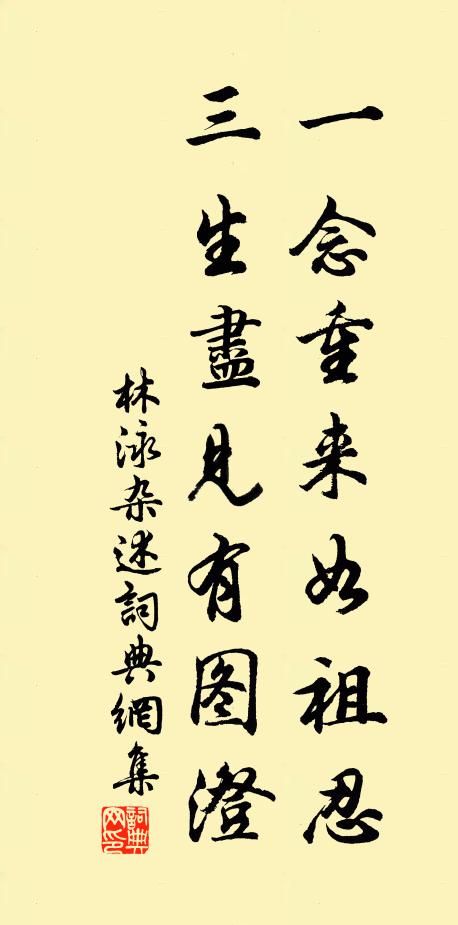 一念重来如祖忍
三生盡見有图澄
林泳杂述詞典網集
詞典网印